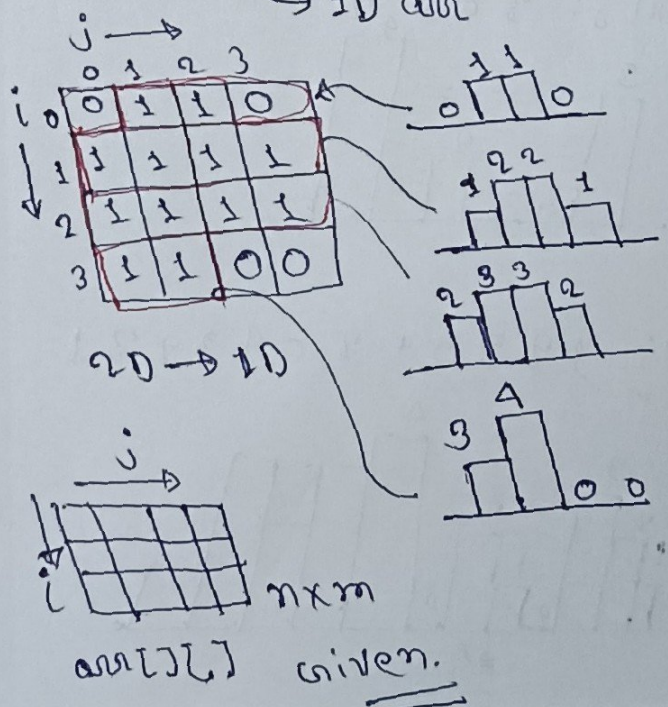 → 1D arr
j →
0 1 2 3
i 0 0 1 1 0
1 1 1 1 1
2 1 1 1 1
3 1 1 0 0
0 1 1 0
1 2 2 1
2 3 3 2
3 4 0 0
2D → 1D
j →
i
n x m
arr[][]  Given.